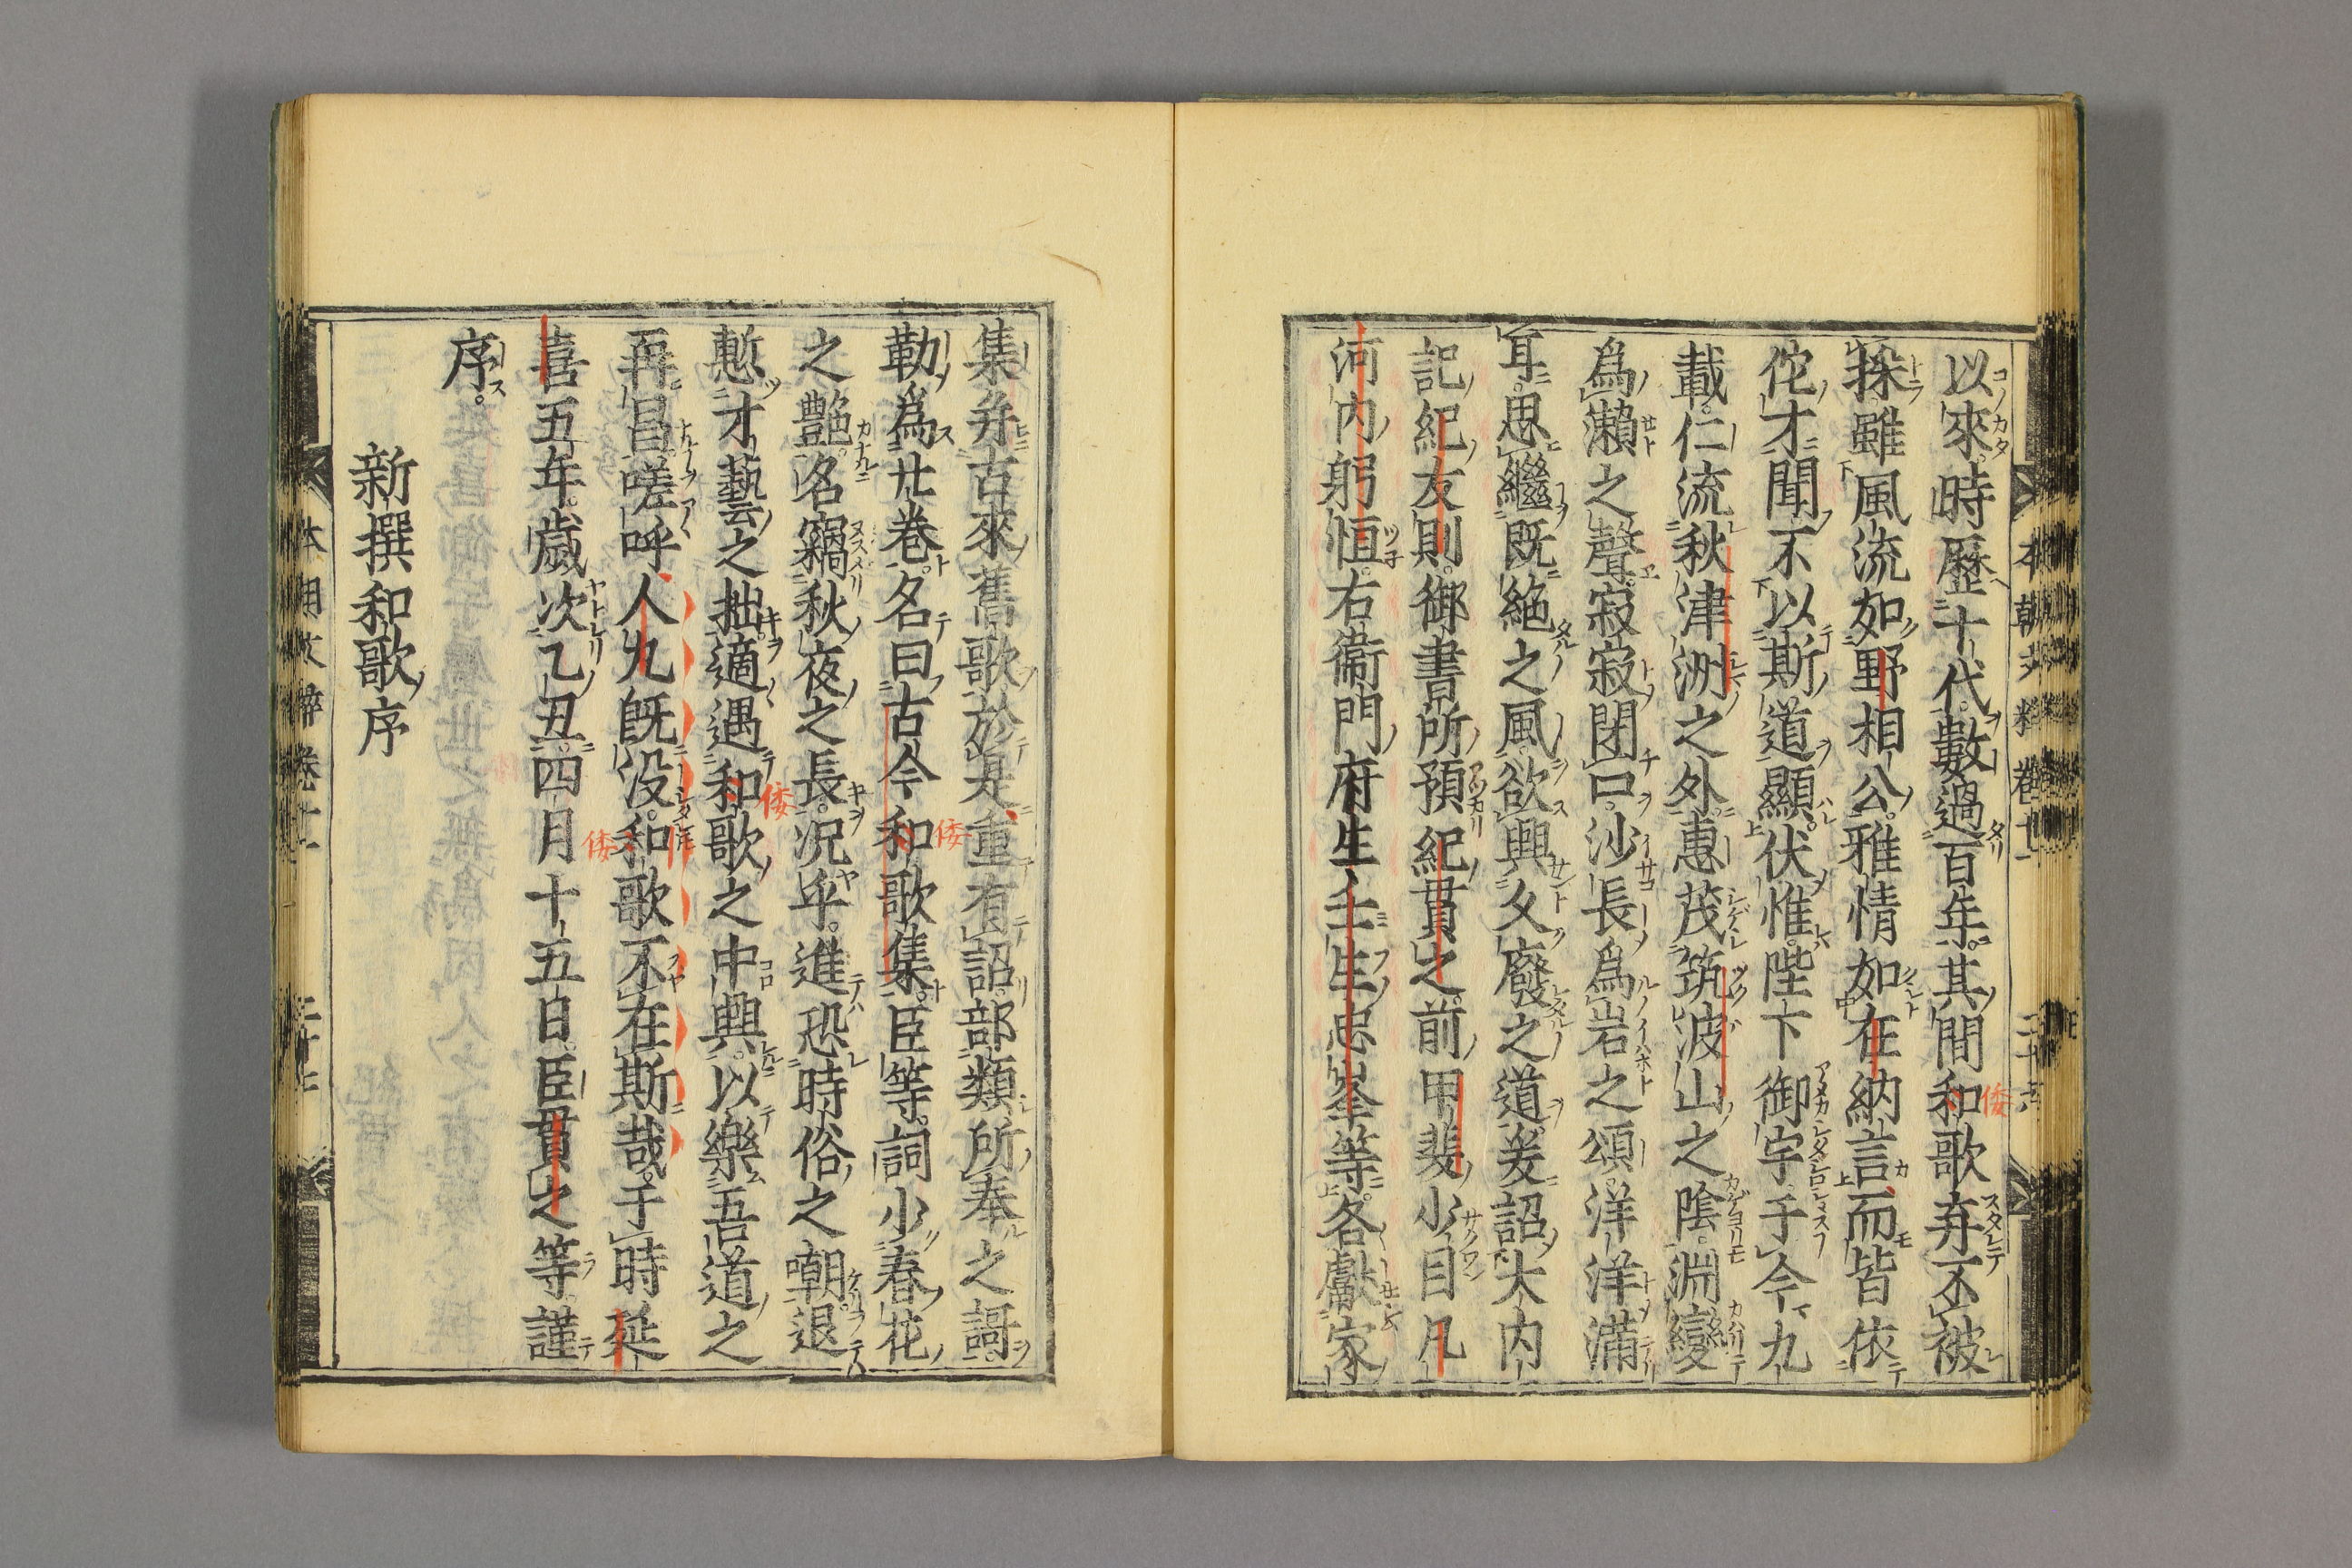 以來時歷十代數過百年其間和歌弃不被
採雖風流如野相公雅情如在納言而皆依
佗才聞不以斯道顯伏惟陛下御宇于今九
載仁流秋津洲之外惠茂筑波山之陰淵變
爲瀨之聲寂寂閉口沙長爲岩之頌洋洋滿
耳思繼既絶之風欲興久廢之道爰詔大内
記紀友則御書所預紀貫之前甲斐少目凡
河内躬恒右衞門府生壬生忠岑等各獻家
集并古來舊歌於是重有詔部類所奉之謌
勒爲廿卷名曰古今和歌集臣等詞少春花
之艶名竊秋夜之長況乎進恐時俗之嘲退
慙才藝之拙適遇和歌之中興以樂吾道之
再昌嗟呼人丸既没和歌不在斯哉于時延
喜五年歲次乙丑四月十五日臣貫之等謹
序
新撰和歌序